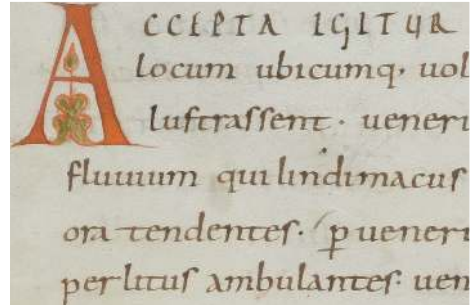 ACCEPTA IGITUR
locum ubicumq· uol
luſtraſſent · ueneri
fluuium qui lindimacuſ
ora tendenteſ · p ueneri
per lituſ ambulanteſ · uen